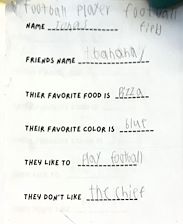 football player football
field
NAME
FRIENDS NAME
THIER FAVORITE FOOD IS Pizza
THEIR FAVORITE COLOR IS blue
THEY LIKE TO play football
THEY DON'T LIKE the chief